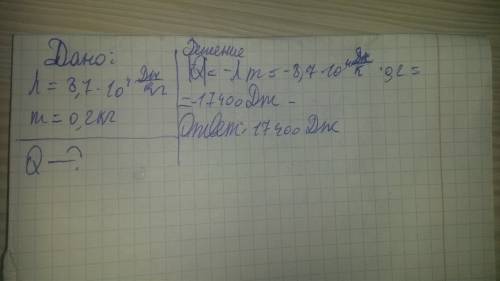 Дано:
λ = 8,7 · 10⁴ Дж/кг
m = 0,2 кг
Q — ?
Решение
Q = -λ m = -8,7 · 10⁴ Дж/К · 0,2 =
= -17400 Дж -
Ответ: 17400 Дж